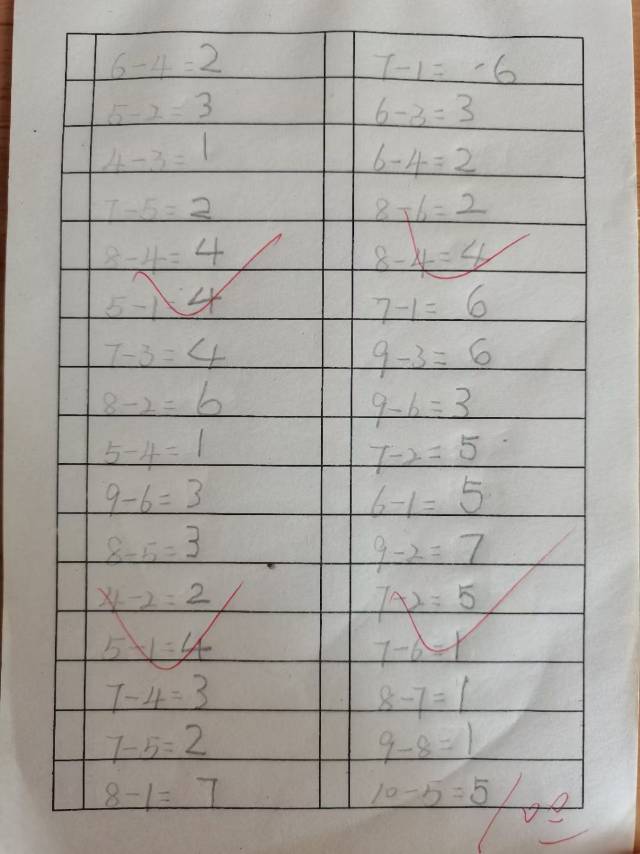 6-4=2 7-1=6
5-2=3 6-3=3
4-3=1 6-4=2
7-5=2 8-6=2
8-4=4 8-4=4
5-1=4 7-1=6
7-3=4 9-3=6
8-2=6 9-6=3
5-4=1 7-2=5
9-6=3 6-1=5
8-5=3 9-2=7
4-2=2 7-2=5
5-1=4 7-6=1
7-4=3 8-7=1
7-5=2 9-8=1
8-1=7 10-5=5
100